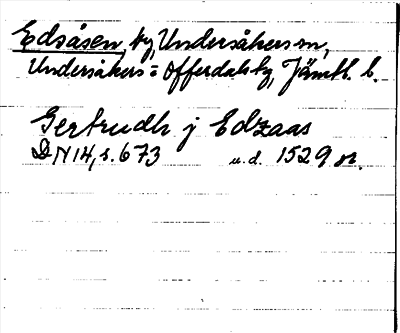 Edsåsen, by, Undersåkers sn,
Undersåkers- o Offerdals tg, Jämtl. l.
Gertrudh j Edzaas
DN 14, s. 673 u.d. 1529 n.